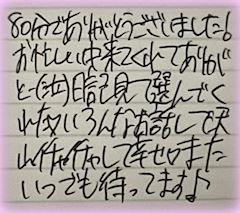 80分でありがとうございました!
お忙しい中来てくれてありが
と〜(泣)日記見て選んでく
れたいろんなお話して沢
山イチャイチャして幸せ♡また
いつでも待ってます♪